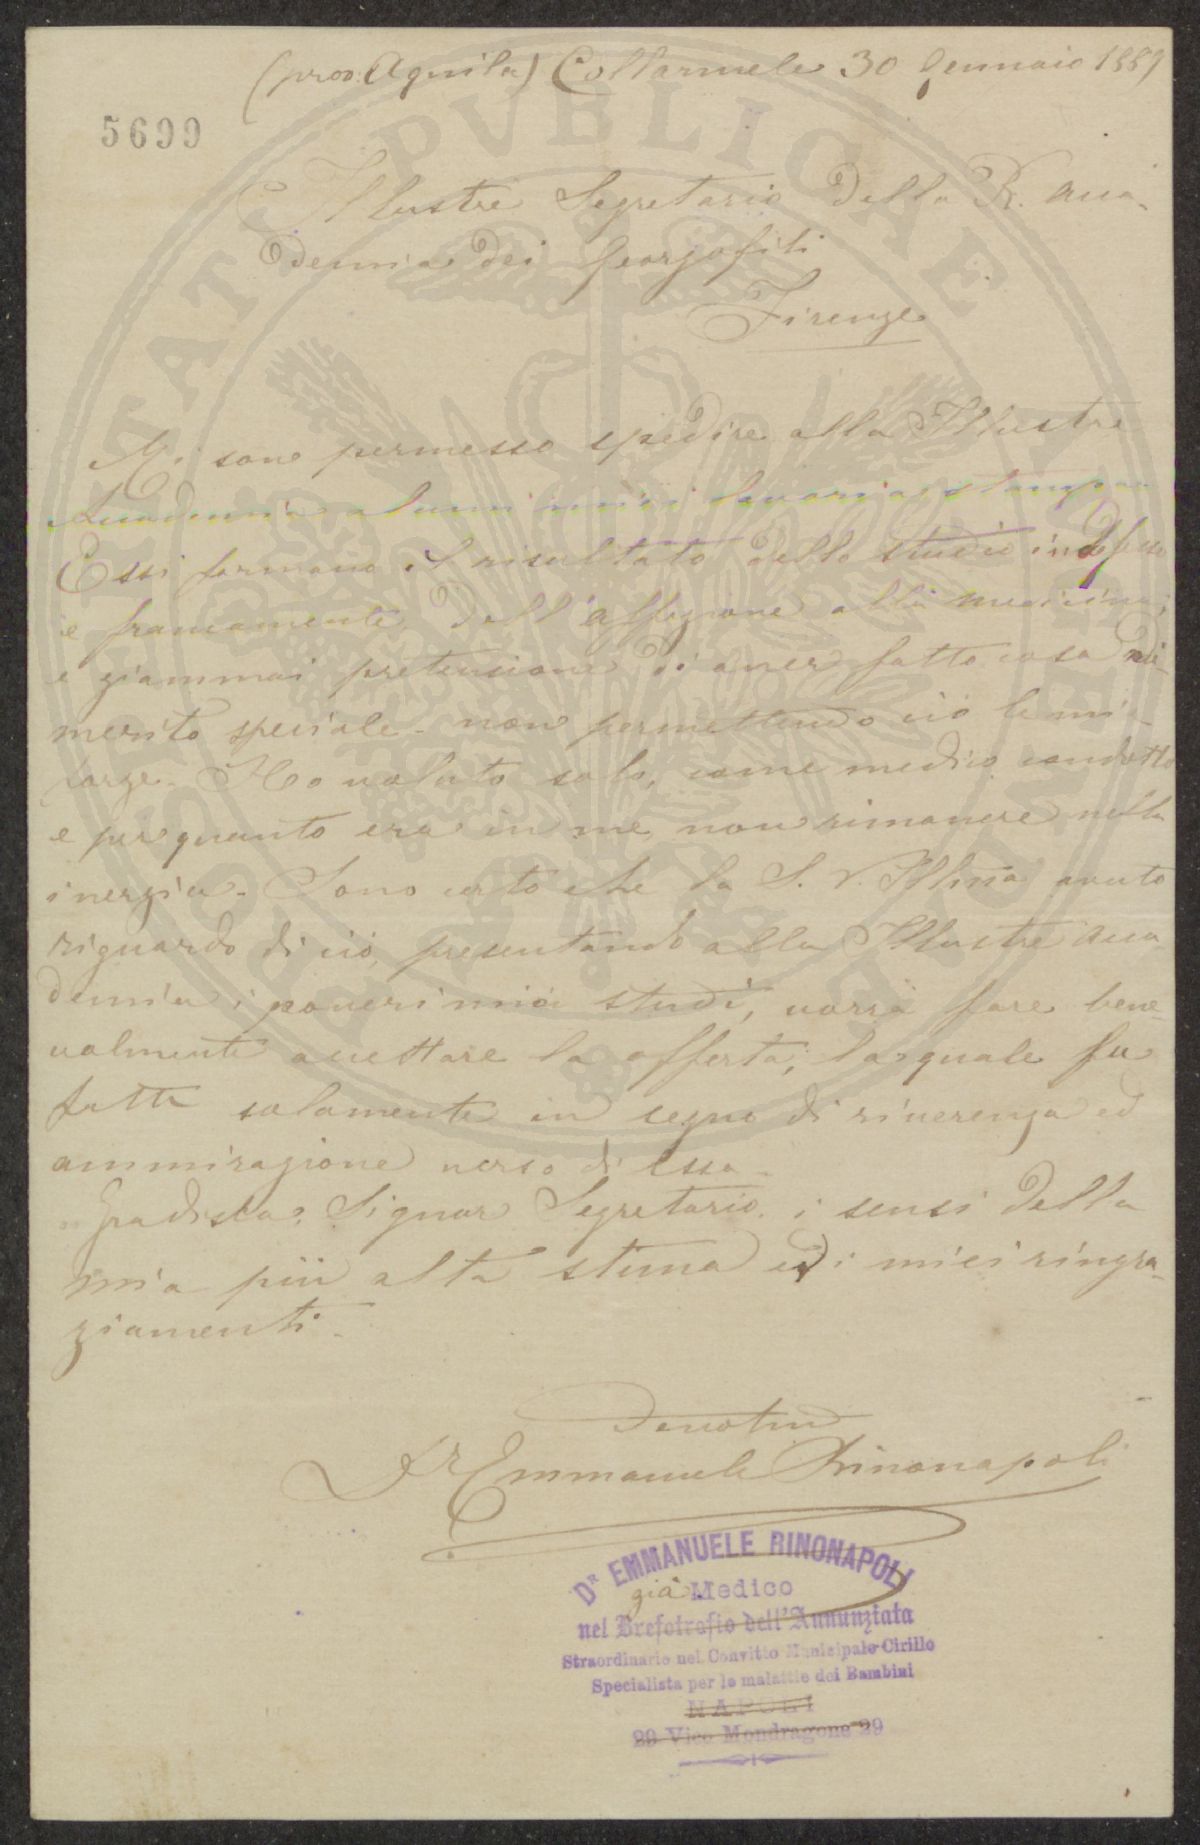 (prov. Aquila) Collarmele 30 Gennaio 1889
5699
Illustre Segretario della R. Acca-
demia dei Georgofili
Firenze
Mi sono permesso spedire alla Illustre
Accademia alcuni miei lavori a stampa
Essi formano il risultato dello studio indefesso
e francamente dell'affezione alla medicina,
e giammai pretensione di aver fatto cosa di
merito speciale - non permettendo ciò le mie
forze - Ho voluto solo, come medico condotto
e per quanto era in me, non rimanere nella
inerzia - Sono certo che la S. V. Illma avuto
riguardo di ciò, presentando alla Illustre Acca
demia i poveri miei studi, vorrà fare bene-
volmente accettare la offerta; la quale fu
fatta solamente in segno di riverenza ed
ammirazione verso di essa -
Gradisca, Signor Segretario, i sensi della
mia più alta stima ed i miei ringra-
ziamenti -
Devotmo
Dr Emmanuele Rinonapoli
Dr EMMANUELE RINONAPOLI
già Medico
nel Brefotrofio dell'Annunziata
Straordinario nel Convitto Municipale Cirillo
Specialista per le malattie dei Bambini
NAPOLI
29 Vico Mondragone 29